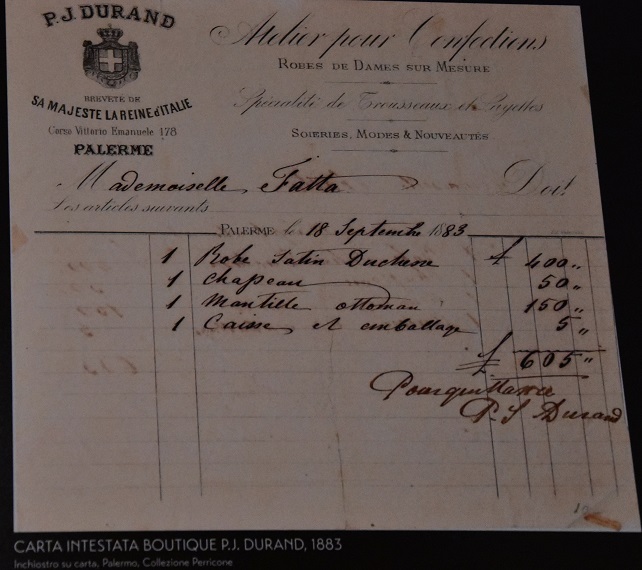 P.J. DURAND
BREVETÉ DE
SA MAJESTE LA REINE d'ITALIE
Corso Vittorio Emanuele 178
PALERME
Atelier pour Confections
ROBES DE DAMES SUR MESURE
Spécialité de Trousseaux et Layettes
SOIERIES, MODES & NOUVEAUTÉS
Mademoiselle Fatta Doit
Les articles suivants
PALERME le 18 Septembre 1883
1 Robe Satin Duchesse £ 400 "
1 chapeau 50 "
1 Mantille ottoman 150 "
1 Caisse et emballage 5 "
£ 605 "
Pour quittance
P. J Durand
CARTA INTESTATA BOUTIQUE P.J. DURAND, 1883
Inchiostro su carta, Palermo, Collezione Perricone